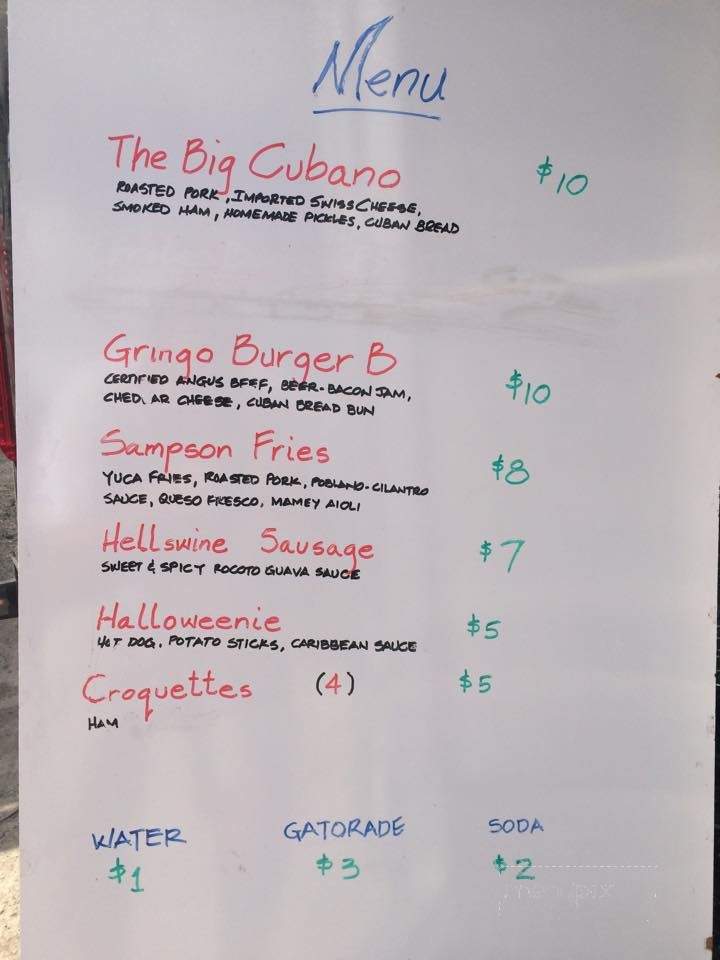 Menu
The Big Cubano $10
ROASTED PORK, IMPORTED SWISS CHEESE,
SMOKED HAM, HOMEMADE PICKLES, CUBAN BREAD
Gringo Burger B $10
CERTIFIED ANGUS BEEF, BEER-BACON JAM,
CHEDDAR CHEESE, CUBAN BREAD BUN
Sampson Fries $8
YUCA FRIES, ROASTED PORK, POBLANO-CILANTRO
SAUCE, QUESO FRESCO, MAMEY AIOLI
Hellswine Sausage $7
SWEET & SPICY ROCOTO GUAVA SAUCE
Halloweenie $5
HOT DOG, POTATO STICKS, CARIBBEAN SAUCE
Croquettes (4) $5
HAM
WATER GATORADE SODA
$1 $3 $2